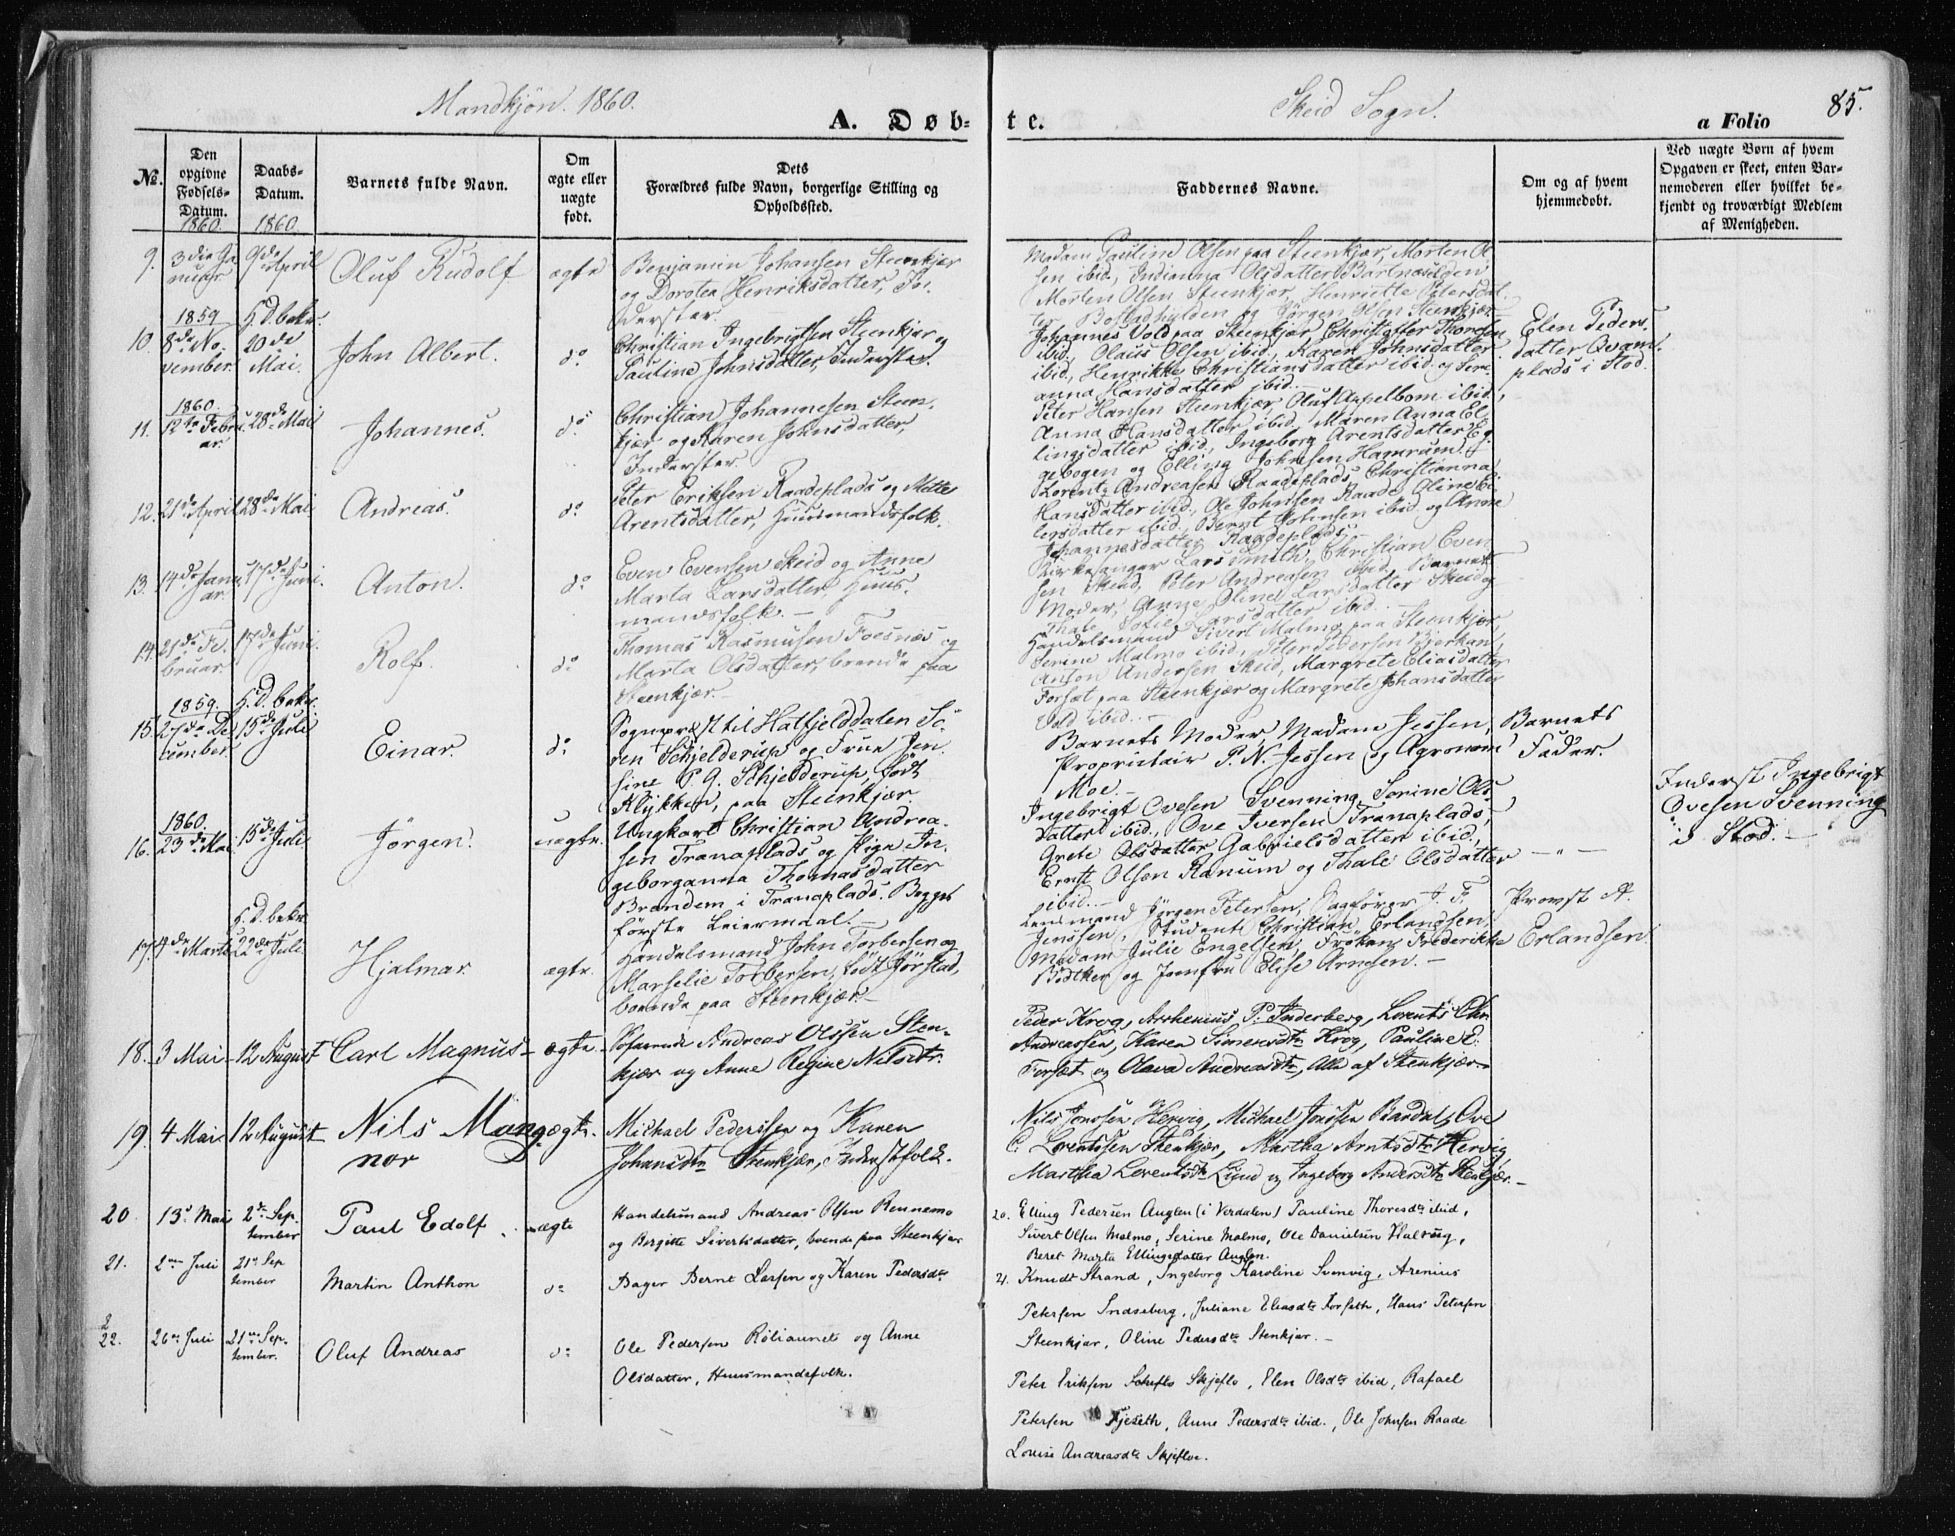 Mandkjøn. 1860.
A. Døb-
te.
Skeid Sogn.
a Folio
85.
No.
Den opgivne Fødsels-Datum.
Daabs-Datum.
Barnets fulde Navn.
Om ægte eller uægte født.
Dets Forældres fulde Navn, borgerlige Stilling og Opholdssted.
Faddernes Navne.
Om og af hvem hjemmedøbt.
Ved uægte Børn af hvem Opgaven er skeet, enten Barnemoderen eller hvilket bekjendt og troværdigt Medlem af Menigheden.
1860. 1860.
9. 3die Januar. 9de April Oluf Rudolf ægte
Benjamin Johansen Steenkjær
og Dorotea Henriksdatter, In-
derster.
Madam Pauline Olsen paa Steenkjær, Morten Ol-
sen ibid., Olsdatter
Morten Olsen Steenkjær, Henriette Petersdat-
ter og Jørgen Olsen Steenkjær.
1859 H.D. bekr.
10. 8de November. 20de Mai. John Albert. do
Christian Ingebrigtsen Steenkjær og
Pauline Johnsdatter, Inderster.
Johannes Vold paa Steenkjær, Christofer Thoresen
ibid., Olaus Olsen ibid., Karen Johnsdatter
ibid., Henrikke Christiansdatter ibid. og
anna Hansdatter ibid.
Elen Peders-
datter Qvam-
plads i Stod.
1860.
11. 12te Februar. 28de Mai Johannes. do
Christian Johannesen Steen-
kjær og Karen Johnsdatter
Inderster.
Peter Hansen Steenkjær, Oluf Appelbom ibid.,
Anna Hansdatter ibid., Maren Anna El-
lingsdatter ibid., Ingeborg Arentsdatter Eg-
gebogen og Elling Johnsen Hamrum.
12. 21de April 28de Mai Andreas. do
Peter Eriksen Raadeplads og Mette
Arentsdatter, Huusmandsfolk.
Lorentz Andreasen Raadeplads, Christianna
Hansdatter ibid., Ole Johnsen Raade, Oline Ei-
lersdatter ibid., Bernt Johnsen ibid. og Anne
Johannesdatter Raadeplads.
13. 14de Januar. 17de Juni. Anton. do
Even Evensen Skeid og Anne
Marta Larsdatter, Huus-
mandsfolk.
Kirkesanger Lars Smith, Christian Even-
sen Skeid, Peter Andreasen ibid., Barnets
Moder, Anne Oline Larsdatter Skeid og
Thale Sofie Larsdatter ibid.
14. 21de Februar. 17de Juni. Rolf. do
Thomas Rasmusen Foesnæs og
Marta Olsdatter, boende paa
Steenkjær.
Handelsmand Sivert Malmo paa Steenkjær,
Serine Malmo ibid., Peter Pedersen Bjerkan,
Anton Andersen Skeid, Margrete Eliasdatter
Forsæt paa Steenkjær og Margrete Johansdatter
Vold ibid.
1859. H.D. bekr.
15. 27de December. 15de Juli Einar. do
Sognepræst til Hatfjelddalen Sö-
ren Schjelderup og Frue Jen-
sine P. G. Schjelderup, født
Klykken, paa Steenkjær.
Barnets Moder, Madam Jessen,
Proprietair P. N. Jessen og Agronom
Moe.
Barnets
Fader.
1860.
16. 23de Mai 15de Juli Jørgen. uægte.
Ungkarl Christian Andrea-
sen Tranaplads og Pige In-
geborganna Thomasdatter
Brandem i Tranaplads. Begges
første Leiermaal.
Ingebrigt Ovesen Svenning, Serine Ols-
datter ibid., Ove Iversen Tranaplads,
Grete Olsdatter Gabrielsdatter ibid.,
Ernst Olsen Ranum og Thale Olsdatter
ibid.
Inderst Ingebrigt
Ovesen Svenning
i Stod.
H.D. bekr.
17. 4de Marts 22de Juli Hjalmar. ægte.
Handelsmand John Torbersen og
Marselie Torbersen, født Jørstad,
boende paa Steenkjær.
Lensmand Jørgen Petersen, Sagfører J. F.
Jenssen, Student Christian Erlandsen,
Madam Julie Engelsen, Frøken Frederikke
Bødtker og Jomfru Elise Arnesen.
Provst A.
Erlandsen.
18. 3 Mai 12 August Carl Magnus ægte
Søfarende Andreas Olssen Sten-
kjær og Anne Regine Nilsdtr.
Peder Krog, Arrhenius P. Inderberg, Lorents Chr.
Andreassen, Karen Simensdtr Krog, Pauline E.
Forsæt og Olava Andreasdtr, Alle af Stenkjær.
19. 4 Mai 12 August Nils Mang-
nor ægte.
Michael Pederssen og Karen
Johansdtr Stenkjær, Inderstfolk.
Nils Jenssen Hervig, Michael Jenssen Bardal, Ove
C. Lorentssen Stenkjær, Martha Arntsdtr Hervig,
Martha Lorentsdtr Lund og Ingeborg Andersdtr Stenkjær.
20. 13de Mai 2den September Paul Edolf. ægte
Handelsmand Andreas Olsen Rennemo
og Bergitte Sivertsdatter, boende paa Steenkjær
20. Elling Pedersen Auglen (i Verdalen) Pauline Thoresdtr ibid,
Sivert Olsen Malmo, Serine Malmo, Ole Danielsen Halvug,
Beret Marta Ellingsdatter Auglen.
21. 2den Juli 21de September Martin Anthon do
Bager Bernt Larsen og Karen Pedersdtr
21. Knudt Strand, Ingeborg Karoline Svenvig, Arenius
Petersen Indseberg, Juliane Eliasdtr Forseth, Hans Petersen
Steenkjær, Oline Pedersdtr Stenkjær.
22. 26de Juli 21de September. Oluf Andreas do
Ole Pedersen Røliaunet og Anne
Olsdatter, Huusmandsfolk.
Peter Eriksen Skjeflo, Elen Olsdtr ibid, Rafael
Petersen Fjeseth, Anne Pedersdtr ibid., Ole Johnsen Raade
Lovise Andreasdtr Skjefloe.